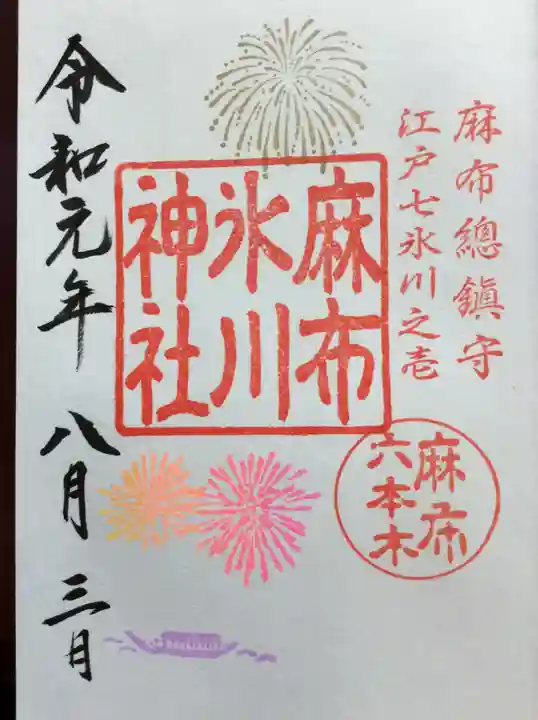 麻布總鎮守
江戸七氷川之壱
麻布
氷川
神社
麻布
六本木
令和元年 八月 三日